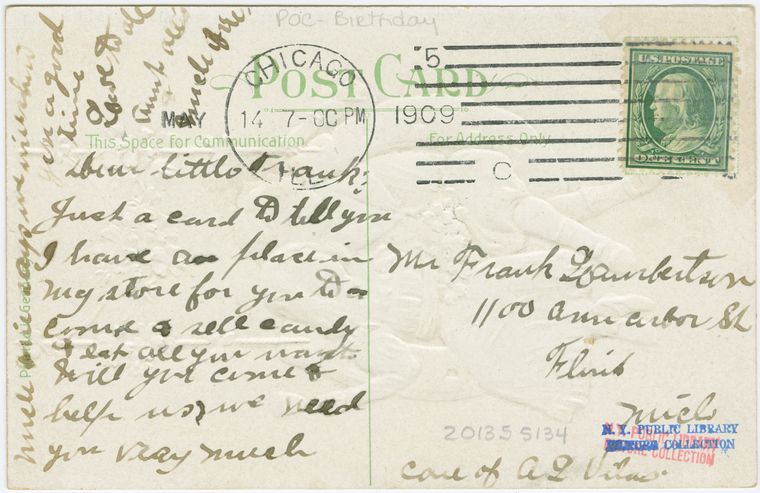 POC - Birthday
POST CARD
CHICAGO
MAY 14 7-00 PM
ILL.
5
1909
C
U.S. POSTAGE
ONE CENT
This Space for Communication
For Address Only
Dear little Frank;
Just a card to tell you
I have a place in
my store for you to
come & sell candy
& eat all you want.
Will you come &
help us, we need
you vray much
much
on a good
time
Love to all
Aunt
Mr Frank Lambertson
1100 Ann arbor St
Flint
Mich
care of A
20135 5134
N.Y. PUBLIC LIBRARY
PICTURE COLLECTION
PUBLIC LIBRARY
PICTURE COLLECTION